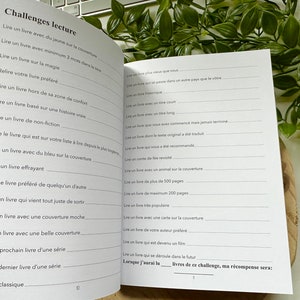 Challenges lecture
Lire un livre avec du jaune sur la couverture
Lire un livre avec minimum 3 mots dans le titre
Lire un livre sur la magie
Relire votre livre préféré
Lire un livre hors de sa zone de confort
Lire un livre de non-fiction
un livre basé sur une histoire vraie
le livre qui est sur votre liste à lire depuis le plus longtemps
un livre avec du bleu sur la couverture
un livre effrayant
livre préféré de quelqu'un d'autre
un livre qui vient tout juste de sortir
un livre avec une couverture moche
livre avec une belle couverture
prochain livre d'une série
dernier livre d'une série
classique
10
Lire un livre plus vieux que vous
Lire un livre qui se passe dans un autre pays que le vôtre
Lire un livre historique
Lire un livre avec un titre court
Lire un livre avec un titre long
Lire un livre que vous avez commencé mais jamais terminé
Lire un livre dont le texte original a été traduit
Lire un livre qui vous a été recommandé
Lire un conte de fée revisité
Lire un livre avec un animal sur la couverture
Lire un livre de plus de 500 pages
Lire un livre de maximum 200 pages
Lire un livre très populaire
Lire un livre avec une carte sur la couverture
Lire un livre de votre auteur préféré
Lire un livre qui est devenu un film
Lire un livre qui se déroule dans le futur
Lorsque j'aurai lu ____ livres de ce challenge, ma récompense sera: